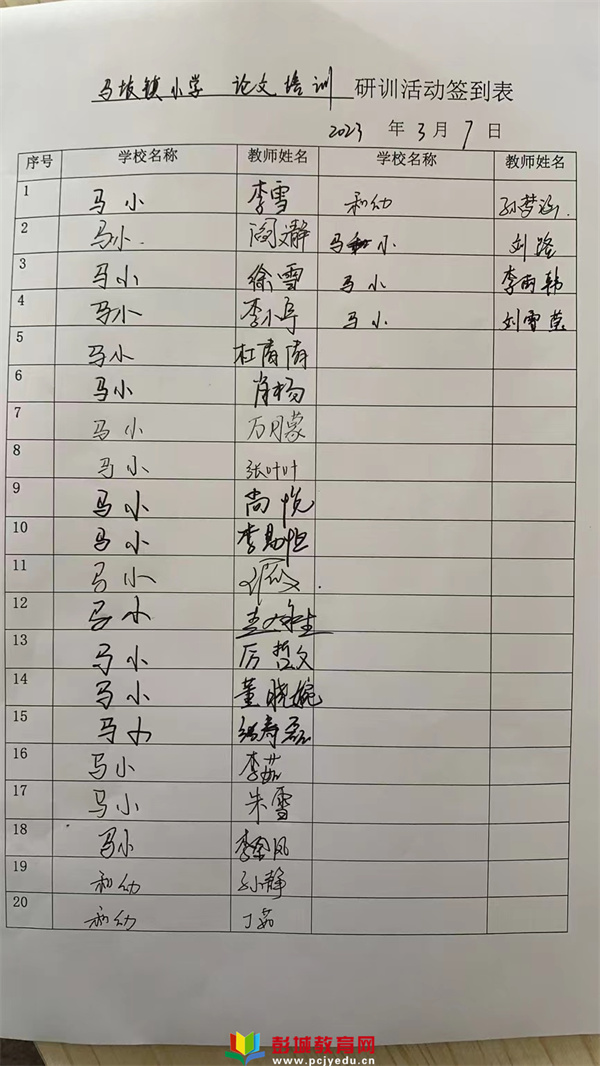 马坡镇小学 论文培训 研训活动签到表
2023 年 3 月 7 日
序号 学校名称 教师姓名 学校名称 教师姓名
1 马小 李雪 和幼 孙梦涵
2 马小 阎文静 马小 刘路
3 马小 徐雪 马小 李雨韩
4 马小 李小亭 马小 刘雪莹
5 马小 杜倩倩
6 马小 肖杨
7 马小 万月蒙
8 马小 张叶叶
9 马小 尚悦
10 马小 李勛恒
11 马小
12 马小
13 马小 厉哲文
14 马小 董晓婉
15 马小
16 马小 李茹
17 马小 朱雪
18 马小 李金凤
19 和幼 孙静
20 和幼 丁茹
彭城教育网
www.pcjyedu.cn